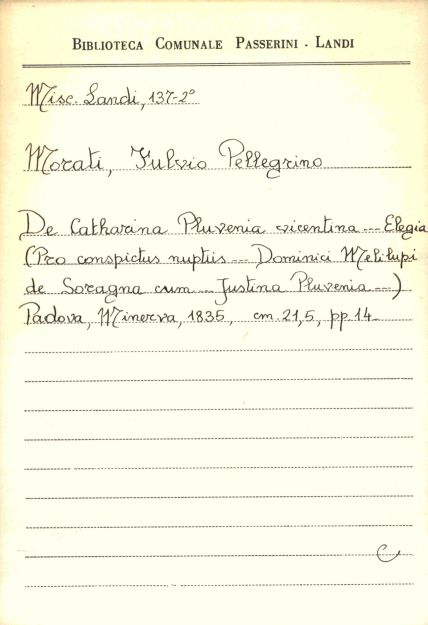 BIBLIOTECA COMUNALE PASSERINI - LANDI
Misc. Landi, 137-2°
Morati, Fulvio Pellegrino
De Catharina Pluvenia vicentina --- Elegia
(Pro conspictus nuptiis --- Dominici Melilupi
de Soragna cum --- Justina Pluvenia ---)
Padova, Minerva, 1835, cm. 21,5, pp. 14.
C